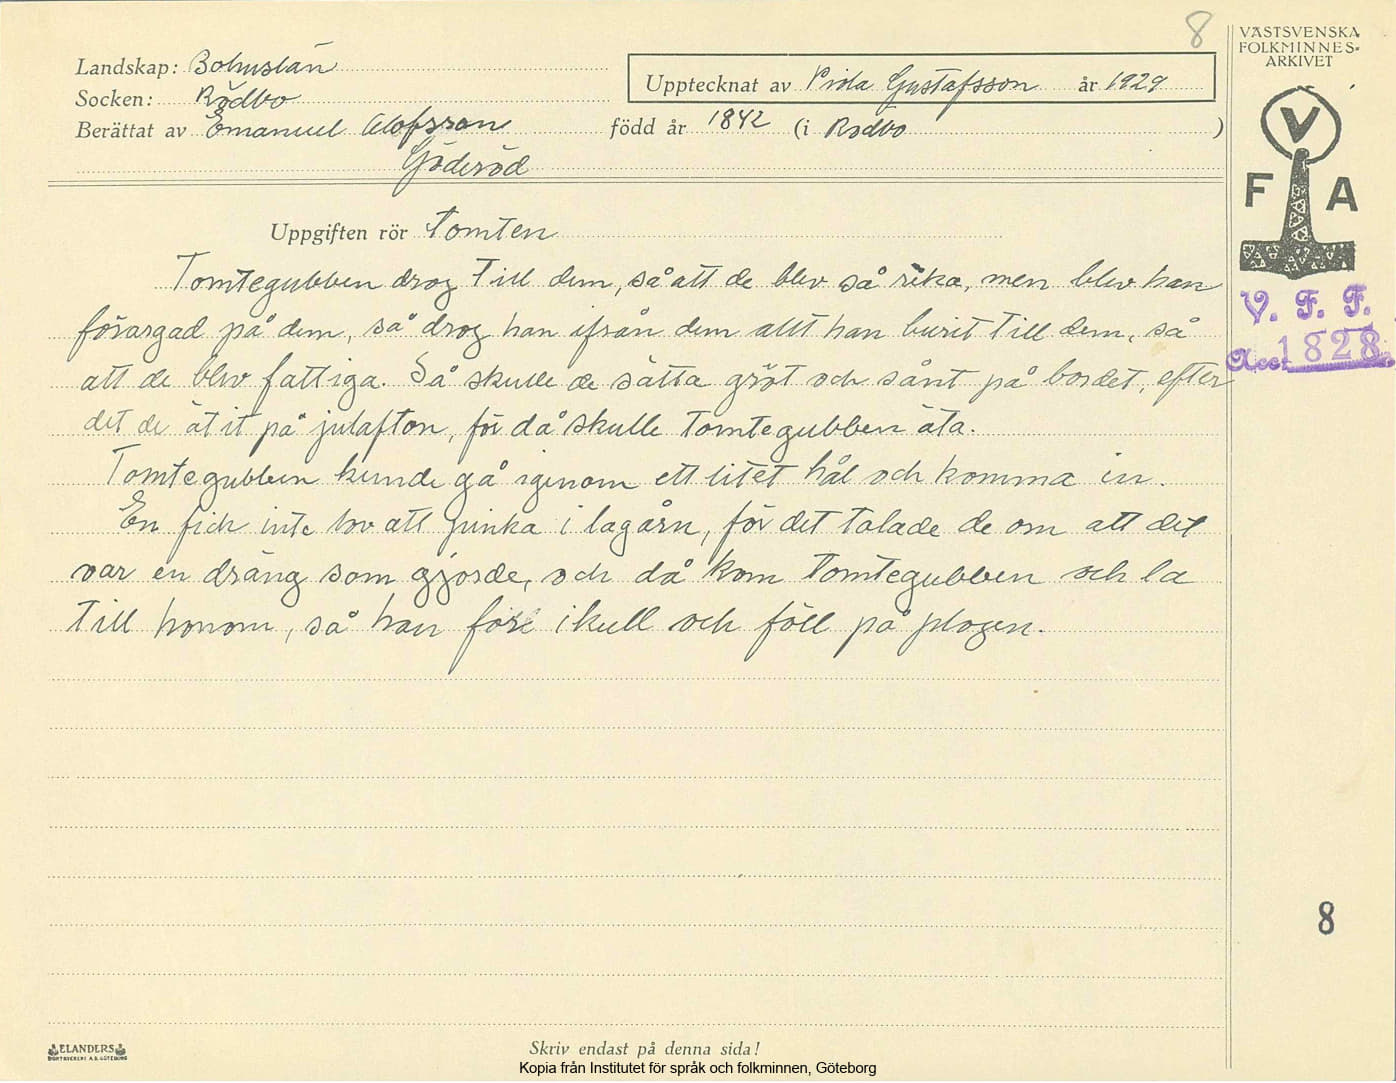 8
VÄSTSVENSKA
FOLKMINNES-
ARKIVET
Landskap: Bohuslän
Socken: Rödbo
Upptecknat av Viola Gustafsson år 1929
Berättat av Emanuel Olofsson född år 1842 (i Rödbo )
Göderöd
V
F A
Uppgiften rör Tomten
Tomtegubben drog till dem, så att de blev så rika, men blev han
förargad på dem, så drog han ifrån dem allt han burit till dem, så
att de blev fattiga. Så skulle de sätta gröt och sånt på bordet, efter
det de ätit på julafton, för då skulle tomtegubben äta.
Tomtegubben kunde gå igenom ett litet hål och komma in.
En fick inte lov att pinka i lagårn, för det talade de om att det
var en dräng som gjorde, och då kom tomtegubben och la
till honom, så han föll ikull och föll på plogen.
V. F. F.
Acc. 1828.
8
ELANDERS
Skriv endast på denna sida!
Kopia från Institutet för språk och folkminnen, Göteborg